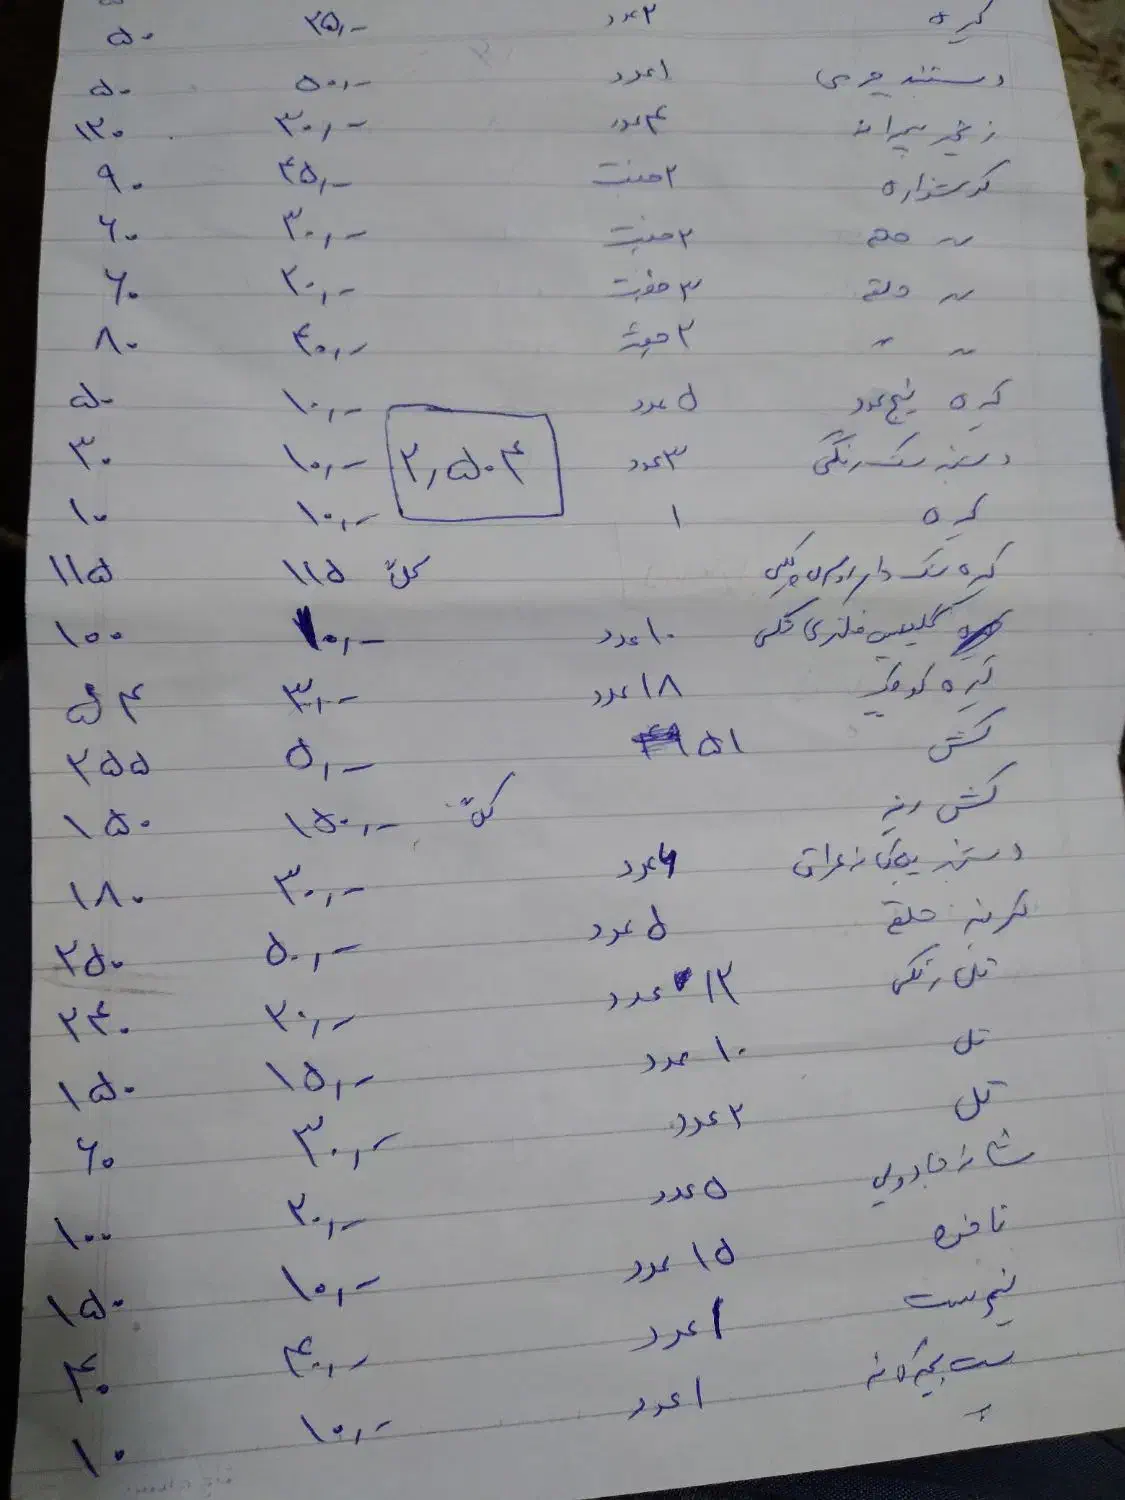 گیره ۲ عدد ۲۵,- ۵۰
دستبند چرمی ۱ عدد ۵۰,- ۵۰
زنجیر پسرانه ۴ عدد ۳۰,- ۱۲۰
گوشواره ۲ جفت ۴۵,- ۹۰
〃 ۲ جفت ۳۰,- ۶۰
〃 حلقه ۳ جفت ۲۰,- ۶۰
〃 〃 ۲ جفت ۴۰,- ۸۰
گیره پنج عدد ۵ عدد ۱۰,- ۵۰
دستبند سنگ رنگی ۳ عدد ۱۰,- ۳۰
۲,۵۰۴
گیره ۱ ۱۰,- ۱۰
گیره سنگ دار کلاً ۱۱۵ ۱۱۵
کلیپس فلزی ۱۰ عدد ۱۰,- ۱۰۰
گیره کوچک ۱۸ عدد ۳,- ۵۴
کش ۵۱ ۵,- ۲۵۵
کش کلاً ۱۵۰,- ۱۵۰
دستبند بچگانه عراقی ۶ عدد ۳۰,- ۱۸۰
حلقه ۵ عدد ۵۰,- ۲۵۰
تل رنگی ۱۲ عدد ۲۰,- ۲۴۰
تل ۱۰ عدد ۱۵,- ۱۵۰
تل ۲ عدد ۳۰,- ۶۰
شانه جادویی ۵ عدد ۲۰,- ۱۰۰
۱۵ عدد ۱۰,- ۱۵۰
نیم ست ۱ عدد ۴۰,- ۴۰
ست بچگانه ۱ عدد ۱۰,- ۱۰